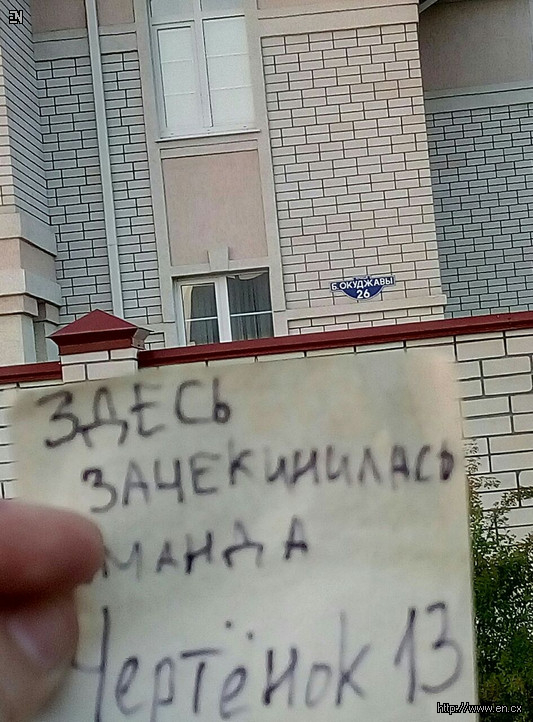 Б. ОКУДЖАВЫ
26
ЗДЕСЬ
ЗАЧЕКИНИЛАСЬ
МАНДА
Чертёнок 13
http://www.en.cx